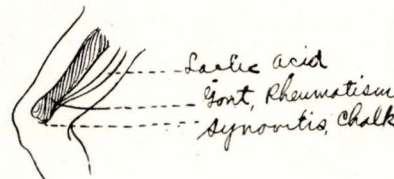 Lactic acid
Gout, Rheumatism
Synovitis, Chalk